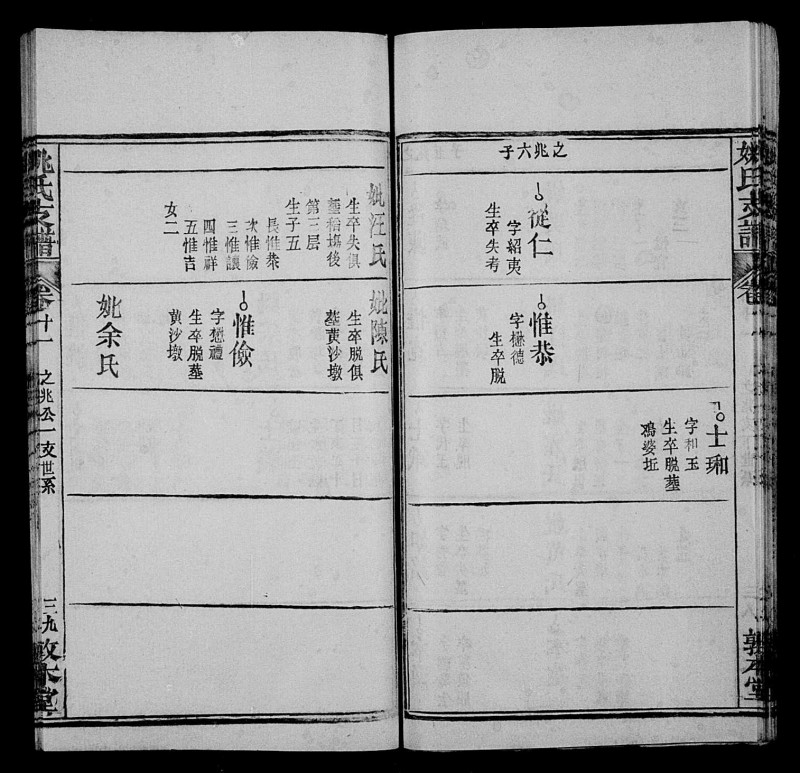 姚氏支譜
之兆六子
從仁
字紹夷
生卒失考
惟恭
字懋德
生卒脫
士和
字和玉
生卒脫塟
鴉婆坵
敦本堂
妣汪氏
生卒失俱
塟栢塲後
第三层
生子五
長惟恭
次惟儉
三惟讓
四惟祥
五惟吉
女二
妣陳氏
生卒脫俱
塟黃沙墩
惟儉
字懋禮
生卒脫塟
黃沙墩
妣余氏
姚氏支譜
卷十一
之兆公一支世系
三九
敦本堂